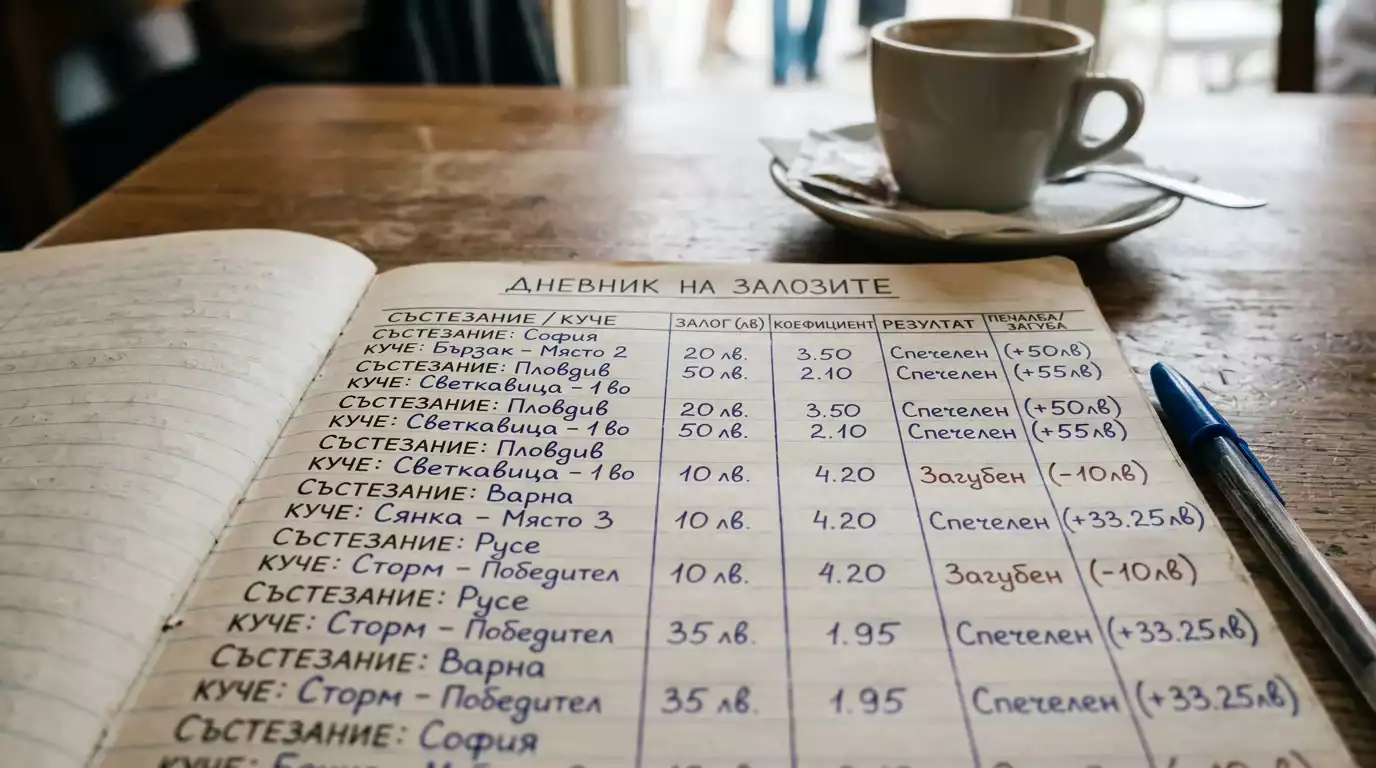 ДНЕВНИК НА ЗАЛОЗИТЕ
СЪСТЕЗАНИЕ / КУЧЕ ЗАЛОГ (лв) КОЕФИЦИЕНТ РЕЗУЛТАТ ПЕЧАЛБА/ЗАГУБА
СЪСТЕЗАНИЕ: София
КУЧЕ: Бързак – Място 2 20 лв. 3.50 Спечелен (+50лв)
СЪСТЕЗАНИЕ: Пловдив 50 лв. 2.10 Спечелен (+55лв)
КУЧЕ: Светкавица – 1во
СЪСТЕЗАНИЕ: Пловдив 20 лв. 3.50 Спечелен (+50лв)
КУЧЕ: Светкавица – 1во 50 лв. 2.10 Спечелен (+55лв)
СЪСТЕЗАНИЕ: Пловдив
КУЧЕ: Светкавица – 1во 10 лв. 4.20 Загубен (-10лв)
СЪСТЕЗАНИЕ: Варна
КУЧЕ: Сянка – Място 3 10 лв. 4.20 Спечелен (+33.25лв)
СЪСТЕЗАНИЕ: Русе
КУЧЕ: Сторм – Победител 10 лв. 4.20 Загубен (-10лв)
СЪСТЕЗАНИЕ: Русе
КУЧЕ: Сторм – Победител 35 лв. 1.95 Спечелен (+33.25лв)
СЪСТЕЗАНИЕ: Варна
КУЧЕ: Сторм – Победител 35 лв. 1.95 Спечелен (+33.25лв)
СЪСТЕЗАНИЕ: София
КУЧЕ: